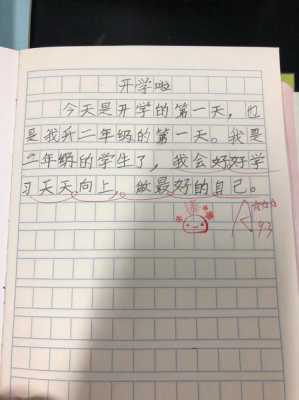 开学啦
今天是开学的第一天，也
是我升二年级的第一天。我是
二年级的学生了，我会好好学
习天天向上，做最好的自己。
A☆☆☆
93